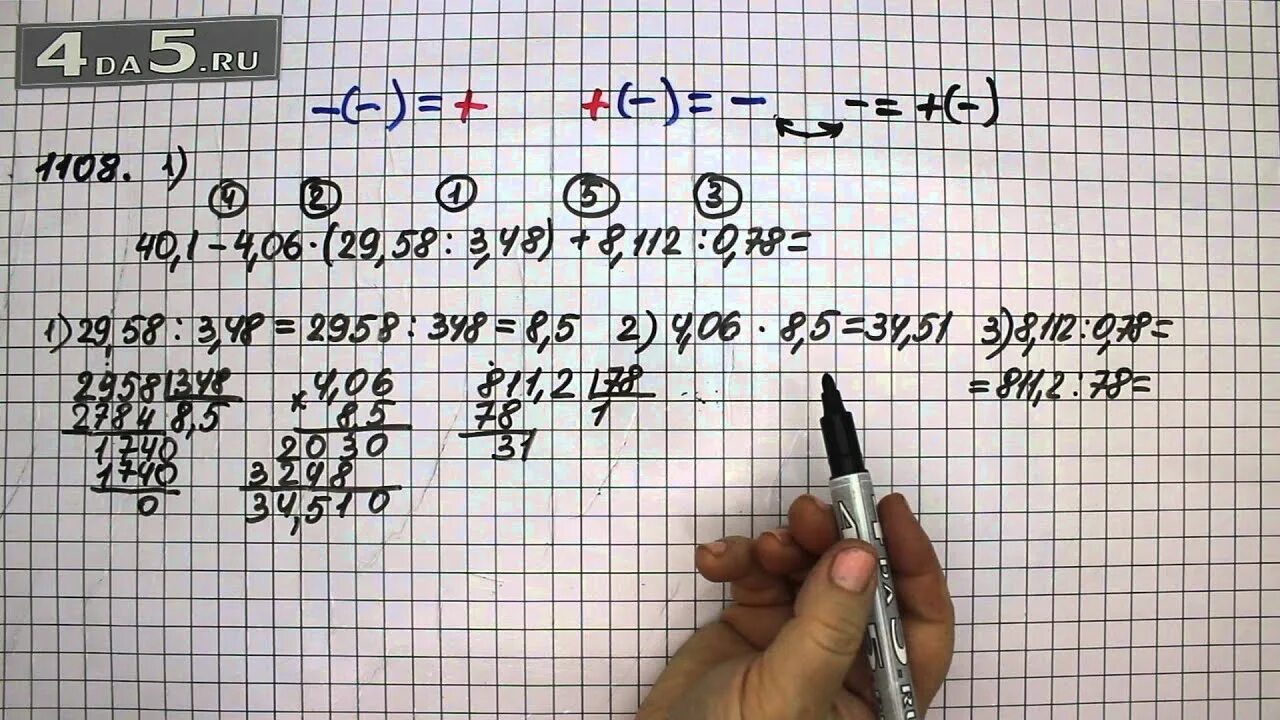 4DA5.RU
-(-) = +    +(-) = -    - = +(-)
1108. 1)
4 2 1 5 3
40,1 - 4,06 · (29,58 : 3,48) + 8,112 : 0,78 =
1) 29,58 : 3,48 = 2958 : 348 = 8,5  2) 4,06 · 8,5 = 34,51  3) 8,112 : 0,78 =
= 811,2 : 78 =
2958 348
2784 8,5
1740
1740
0
× 4,06
8,5
2030
3248
34,510
811,2 78
78 1
31